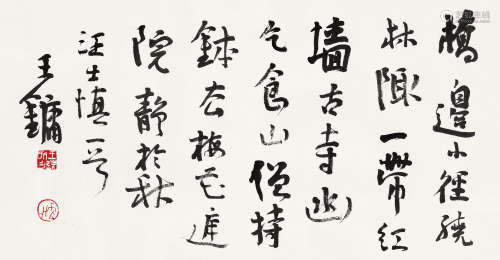 橋邊小徑繞
林陬一帶紅
墻古寺幽
乞食山僧持
鉢去梅花庭
院靜於秋
汪士慎一首
王鏞